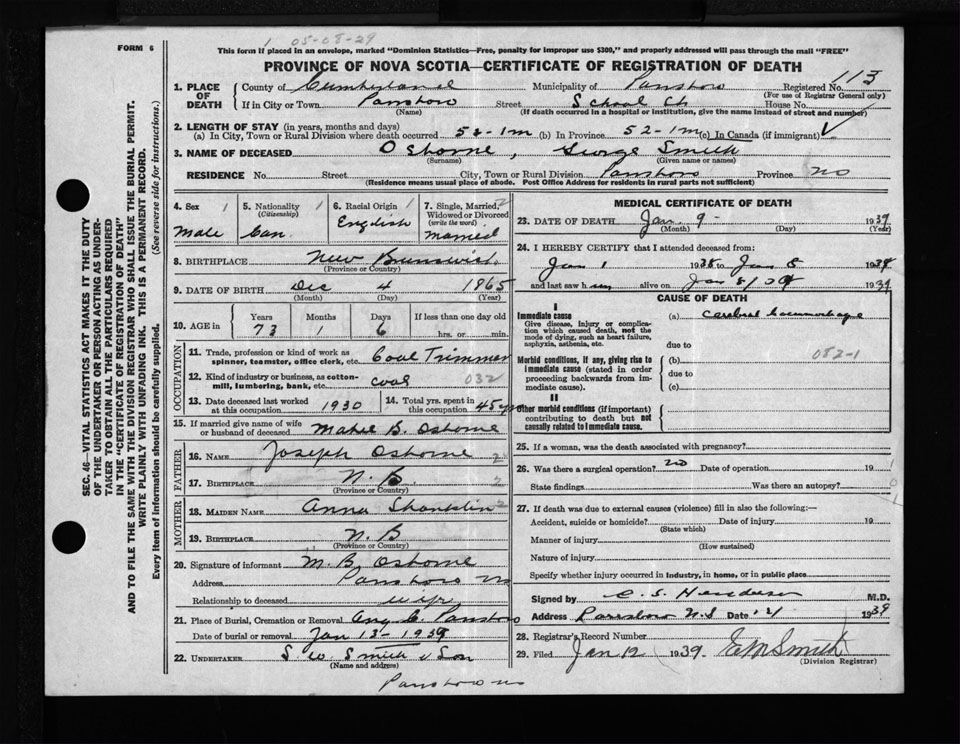 1 05-08-29
FORM 6
This form if placed in an envelope, marked "Dominion Statistics—Free, penalty for improper use $300," and properly addressed will pass through the mail "FREE"
PROVINCE OF NOVA SCOTIA—CERTIFICATE OF REGISTRATION OF DEATH
113
1. PLACE OF DEATH County of Cumberland Municipality of Parrsboro Registered No.
(For use of Registrar General only)
If in City or Town Parrsboro Street School St House No.
(Name) (If death occurred in a hospital or institution, give the name instead of street and number)
2. LENGTH OF STAY (in years, months and days)
(a) In City, Town or Rural Division where death occurred 52-1m (b) In Province 52-1m (c) In Canada (if immigrant)
3. NAME OF DECEASED Osborne, George Smith
(Surname) (Given name or names)
RESIDENCE No. Street City, Town or Rural Division Parrsboro Province NS
(Residence means usual place of abode. Post Office Address for residents in rural parts not sufficient)
4. Sex 1 Male
5. Nationality 1 (Citizenship) Can.
6. Racial Origin 1 English
7. Single, Married, Widowed or Divorced (write the word) 2 Married
8. BIRTHPLACE New Brunswick
(Province or Country)
9. DATE OF BIRTH Dec 4 1865
(Month) (Day) (Year)
10. AGE in Years Months Days If less than one day old
73 1 6 hrs. or min.
OCCUPATION
11. Trade, profession or kind of work as spinner, teamster, office clerk, etc. Coal Trimmer
12. Kind of industry or business, as cotton-mill, lumbering, bank, etc. coal 032
13. Date deceased last worked at this occupation 1930
14. Total yrs. spent in this occupation 45 yrs
15. If married give name of wife or husband of deceased Mabel B. Osborne
FATHER
16. NAME Joseph Osborne 2
17. BIRTHPLACE N.B 2
(Province or Country)
MOTHER
18. MAIDEN NAME Anna Shanklin 2
19. BIRTHPLACE N.B
(Province or Country)
20. Signature of informant M. B. Osborne
Address Parrsboro NS
Relationship to deceased wife
21. Place of Burial, Cremation or Removal Parrsboro
Date of burial or removal Jan 12-1939
22. UNDERTAKER S. W. Smith & Son
(Name and address)
Parrsboro NS
MEDICAL CERTIFICATE OF DEATH
23. DATE OF DEATH Jan. 9- 1939
(Month) (Day) (Year)
24. I HEREBY CERTIFY that I attended deceased from:
Jan 1 1938 to Jan 8 1939
and last saw him alive on Jan 8/39 1939
CAUSE OF DEATH
I
Immediate cause (a) Cerebral haemorrhage
Give disease, injury or complication which caused death, not the mode of dying, such as heart failure, asphyxia, asthenia, etc.
due to
Morbid conditions, if any, giving rise to immediate cause (stated in order proceeding backwards from immediate cause).
(b) 082-1
due to
(c)
II
Other morbid conditions (if important) contributing to death but not causally related to immediate cause.
25. If a woman, was the death associated with pregnancy?
26. Was there a surgical operation? no Date of operation 19
State findings Was there an autopsy?
27. If death was due to external causes (violence) fill in also the following:—
Accident, suicide or homicide? Date of injury 19
(State which)
Manner of injury
(How sustained)
Nature of injury
Specify whether injury occurred in industry, in home, or in public place
Signed by M.D.
Address Parrsboro N.S Date 1939
28. Registrar's Record Number
29. Filed Jan 12 1939 E M Smith
(Division Registrar)
SEC. 46—VITAL STATISTICS ACT MAKES IT THE DUTY
OF THE UNDERTAKER OR PERSON ACTING AS UNDER-
TAKER TO OBTAIN ALL THE PARTICULARS REQUIRED
IN THE "CERTIFICATE OF REGISTRATION OF DEATH"
AND TO FILE THE SAME WITH THE DIVISION REGISTRAR WHO SHALL ISSUE THE BURIAL PERMIT.
WRITE PLAINLY WITH UNFADING INK. THIS IS A PERMANENT RECORD.
Every item of information should be carefully supplied. (See reverse side for instructions.)